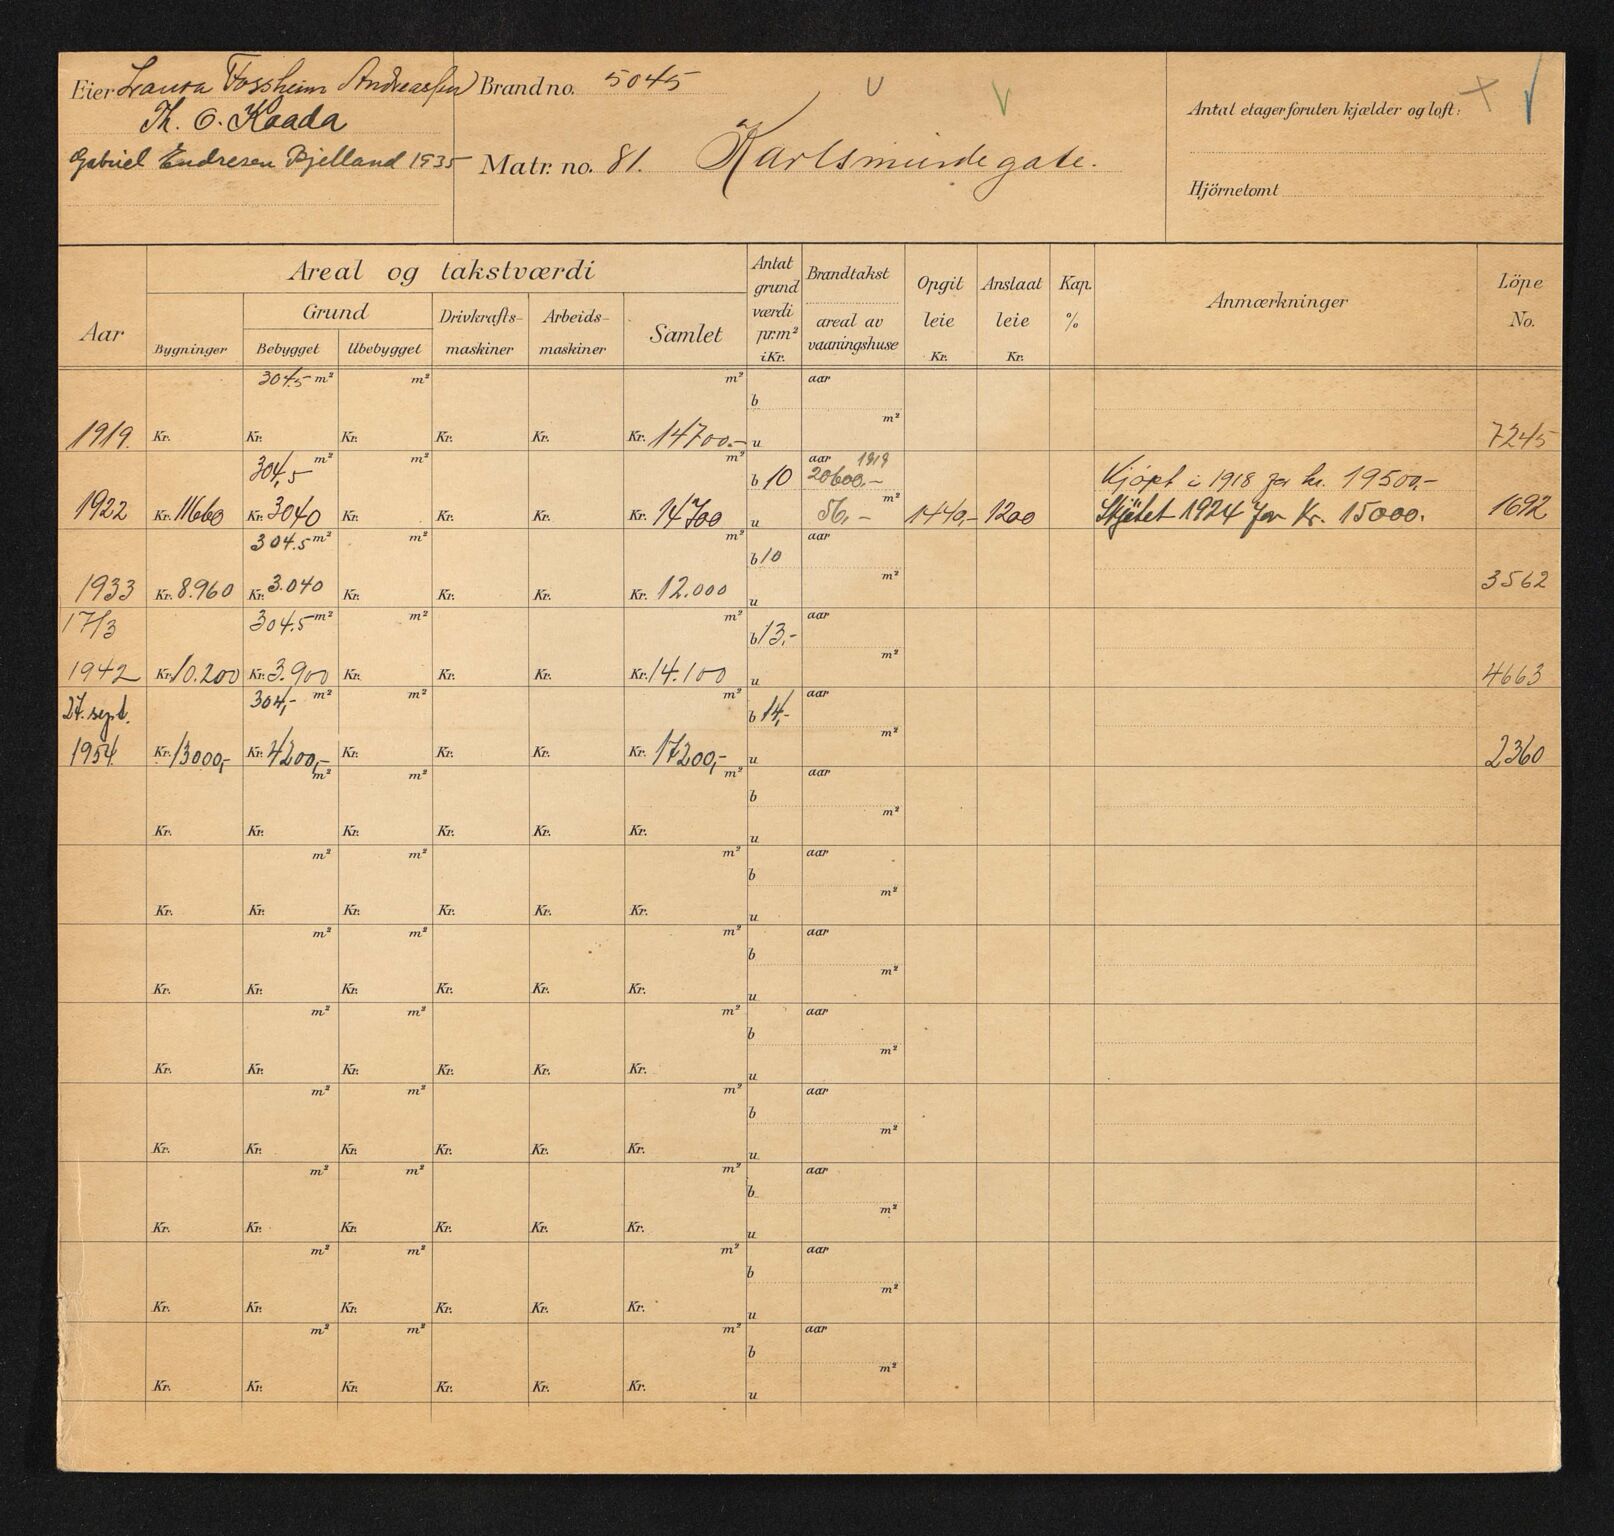 Eier Laura Fossheim Andreassen Brand no. 5045
Th. O. Kaada
Gabriel Endresen Bjelland 1935
Matr. no. 81. Karlsminde gate.
Antal etager foruten kjælder og loft:
Hjörnetomt
Areal og takstværdi
Aar
Grund
Bygninger
Bebygget
Ubebygget
Drivkrafts-
maskiner
Arbeids-
maskiner
Samlet
Antat
grund
værdi
pr.m²
i Kr.
Brandtakst
areal av
vaaningshuse
Opgit
leie
Kr.
Anslaat
leie
Kr.
Kap.
%
Anmærkninger
Löpe
No.
304.5 m² m² m² aar
b
m²
1919. Kr. Kr. Kr. Kr. Kr. Kr. 14700.- u 7245
304,5 m² m² m² b 10 aar 1919
20600,- Kjøpt i 1918 for kr. 19500,-
m²
1922 Kr. 11660 Kr. 3040 Kr. Kr. Kr. Kr. 14700 u 56,- 1440,- 1200 Skjötet 1924 for Kr. 15000. 1692
304.5 m² m² m² aar
b 10
m²
1933 Kr. 8.960 Kr. 3.040 Kr. Kr. Kr. Kr. 12.000 u 3562
17/3 304.5 m² m² m² aar
b 13,-
m²
1942 Kr. 10.200 Kr. 3.900 Kr. Kr. Kr. Kr. 14.100 u 4663
27. sept. 304,- m² m² m² aar
b 14,-
m²
1954 Kr. 13000,- Kr. 4200,- Kr. Kr. Kr. Kr. 17200,- u 2360
m² m² m² aar
b
m²
Kr. Kr. Kr. Kr. Kr. Kr. u
m² m² m² aar
b
m²
Kr. Kr. Kr. Kr. Kr. Kr. u
m² m² m² aar
b
m²
Kr. Kr. Kr. Kr. Kr. Kr. u
m² m² m² aar
b
m²
Kr. Kr. Kr. Kr. Kr. Kr. u
m² m² m² aar
b
m²
Kr. Kr. Kr. Kr. Kr. Kr. u
m² m² m² aar
b
m²
Kr. Kr. Kr. Kr. Kr. Kr. u
m² m² m² aar
b
m²
Kr. Kr. Kr. Kr. Kr. Kr. u
m² m² m² aar
b
m²
Kr. Kr. Kr. Kr. Kr. Kr. u